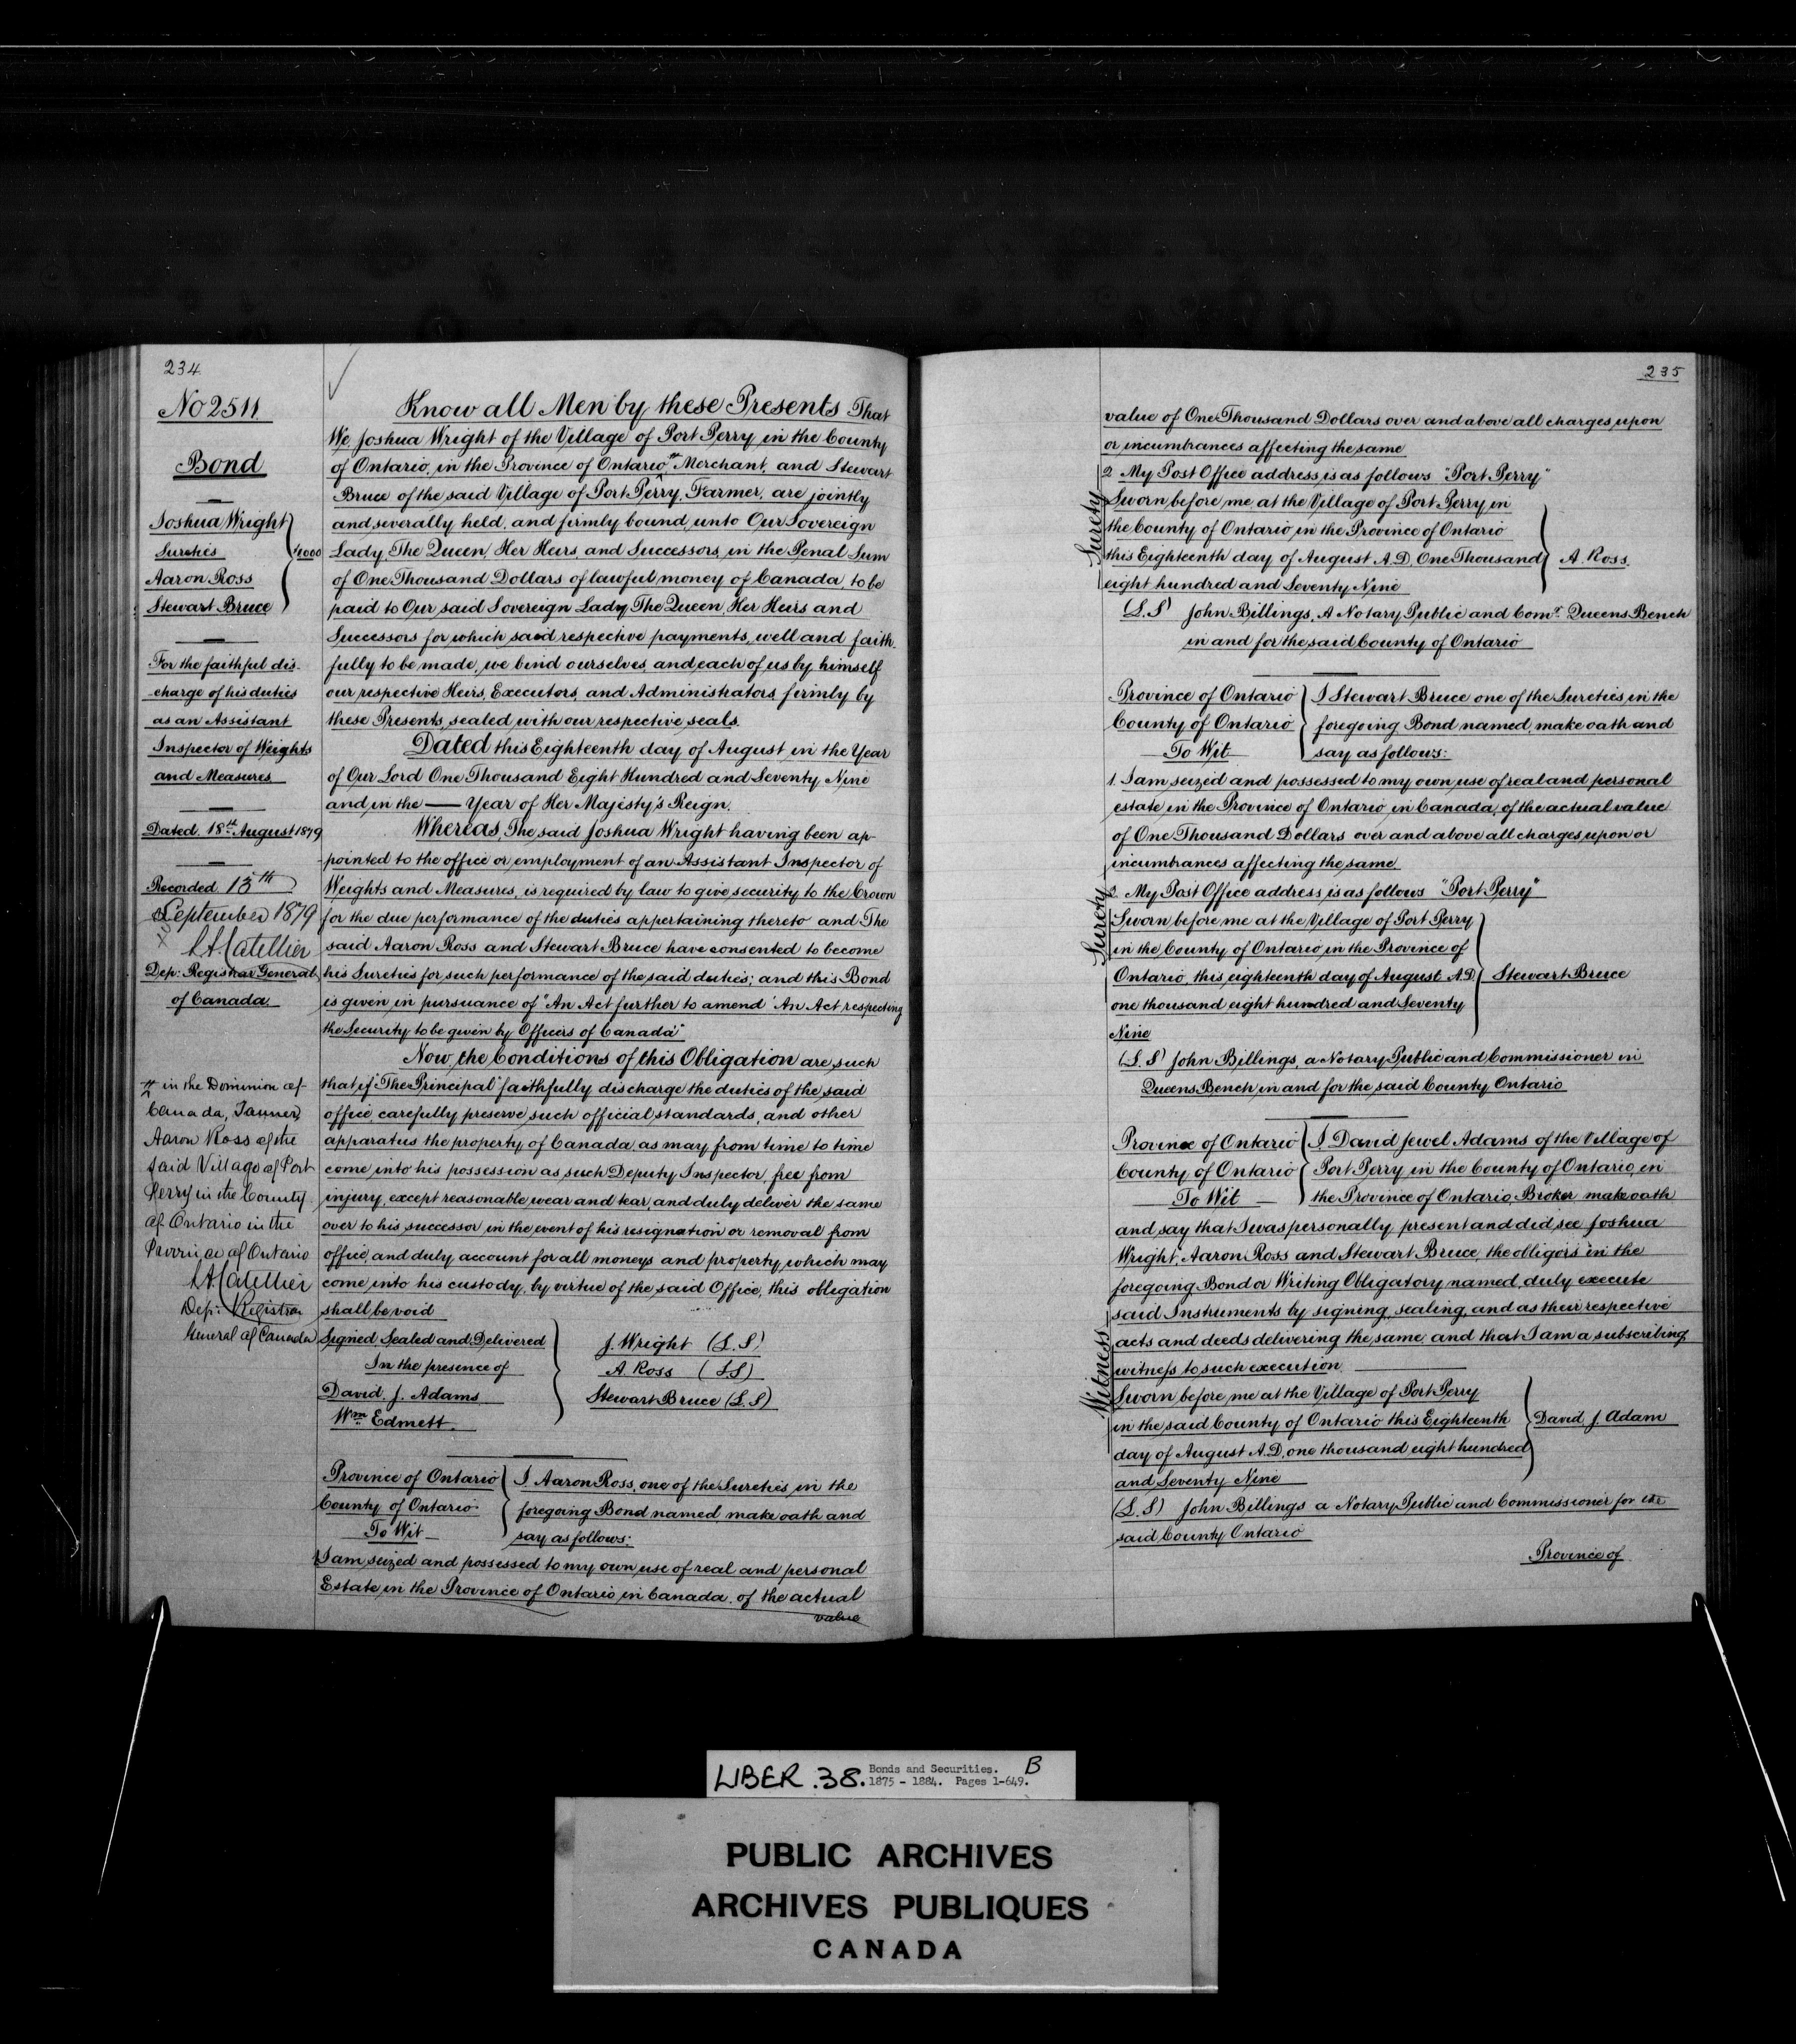 234
No 2511
Bond
Joshua Wright
Sureties
Aaron Ross
Stewart Bruce
$1000
For the faithful dis-
charge of his duties
as an Assistant
Inspector of Weights
and Measures
Dated 18th August 1879
Recorded 15th
September 1879
Dep: Registrar General
of Canada
in the Dominion of
Canada, Tanner,
Aaron Ross of the
said Village of Port
Perry in the County
of Ontario in the
Province of Ontario
Dep: Registrar
General of Canada
Know all Men by these Presents That
We, Joshua Wright of the Village of Port Perry in the County
of Ontario, in the Province of Ontario Merchant, and Stewart
Bruce of the said Village of Port Perry, Farmer, are jointly
and severally held, and firmly bound unto Our Sovereign
Lady, The Queen, Her Heirs and Successors in the Penal Sum
of One Thousand Dollars of lawful money of Canada, to be
paid to Our said Sovereign Lady The Queen, Her Heirs and
Successors for which said respective payments, well and faith-
fully to be made, we bind ourselves, and each of us by himself
our respective Heirs, Executors, and Administrators firmly by
these Presents, sealed with our respective seals.
Dated this Eighteenth day of August in the Year
of Our Lord One Thousand Eight Hundred and Seventy Nine
and in the — Year of Her Majesty's Reign.
Whereas, The said Joshua Wright having been ap-
pointed to the office or employment of an Assistant Inspector of
Weights and Measures, is required by law to give security to the Crown
for the due performance of the duties appertaining thereto and The
said Aaron Ross and Stewart Bruce have consented to become
his Sureties for such performance of the said duties; and this Bond
is given in pursuance of "An Act further to amend 'An Act respecting
the Security to be given by Officers of Canada'"
Now, the Conditions of this Obligation are such
that if "The Principal" faithfully discharge the duties of the said
office, carefully preserve such official standards, and other
apparatus the property of Canada, as may from time to time
come into his possession as such Deputy Inspector, free from
injury, except reasonable wear and tear, and duly deliver the same
over to his successor in the event of his resignation or removal from
office, and duly account for all moneys and property, which may
come into his custody, by virtue of the said Office, this obligation
shall be void
Signed Sealed and Delivered
In the presence of
David. J. Adams
Wm Edmett.
J. Wright (L.S)
A. Ross (L.S)
Stewart Bruce (L.S)
Province of Ontario
County of Ontario
To Wit
I Aaron Ross, one of the Sureties in the
foregoing Bond named make oath and
say as follows:
I am seized and possessed to my own use of real and personal
Estate in the Province of Ontario in Canada. of the actual
value
235
value of One Thousand Dollars over and above all charges upon
or incumbrances affecting the same
2 My Post Office address is as follows "Port Perry"
Surety
Sworn before me at the Village of Port Perry in
the County of Ontario in the Province of Ontario
this Eighteenth day of August A.D. One Thousand
eight hundred and Seventy Nine
A. Ross.
(L.S) John Billings, A Notary Public and Comr. Queens Bench
in and for the said County of Ontario
Province of Ontario
County of Ontario
To Wit
I Stewart Bruce one of the Sureties in the
foregoing Bond named, make oath and
say as follows:
1. I am seized and possessed to my own use of real and personal
estate in the Province of Ontario in Canada, of the actual value
of One Thousand Dollars over and above all charges upon or
incumbrances affecting the same.
2. My Post Office address is as follows "Port Perry"
Surety
Sworn before me at the Village of Port Perry
in the County of Ontario in the Province of
Ontario, this eighteenth day of August A.D.
one thousand eight hundred and Seventy
Nine
Stewart Bruce
(L.S) John Billings, a Notary Public and Commissioner in
Queens Bench in and for the said County Ontario
Province of Ontario
County of Ontario
To Wit
I David Jewel Adams of the Village of
Port Perry in the County of Ontario, in
the Province of Ontario, Broker make oath
and say that I was personally present and did see Joshua
Wright, Aaron Ross and Stewart Bruce, the obligors in the
foregoing Bond or Writing Obligatory named, duly execute
said Instruments by signing, sealing, and as their respective
acts and deeds delivering the same, and that I am a subscribing
witness to such execution
Witness
Sworn before me at the Village of Port Perry
in the said County of Ontario this Eighteenth
day of August A.D. one thousand eight hundred
and Seventy Nine
David. J. Adam
(L.S) John Billings a Notary Public and Commissioner for the
said County Ontario
Province of
LIBER. 38. Bonds and Securities. B
1875 - 1884. Pages 1-649.
PUBLIC ARCHIVES
ARCHIVES PUBLIQUES
CANADA